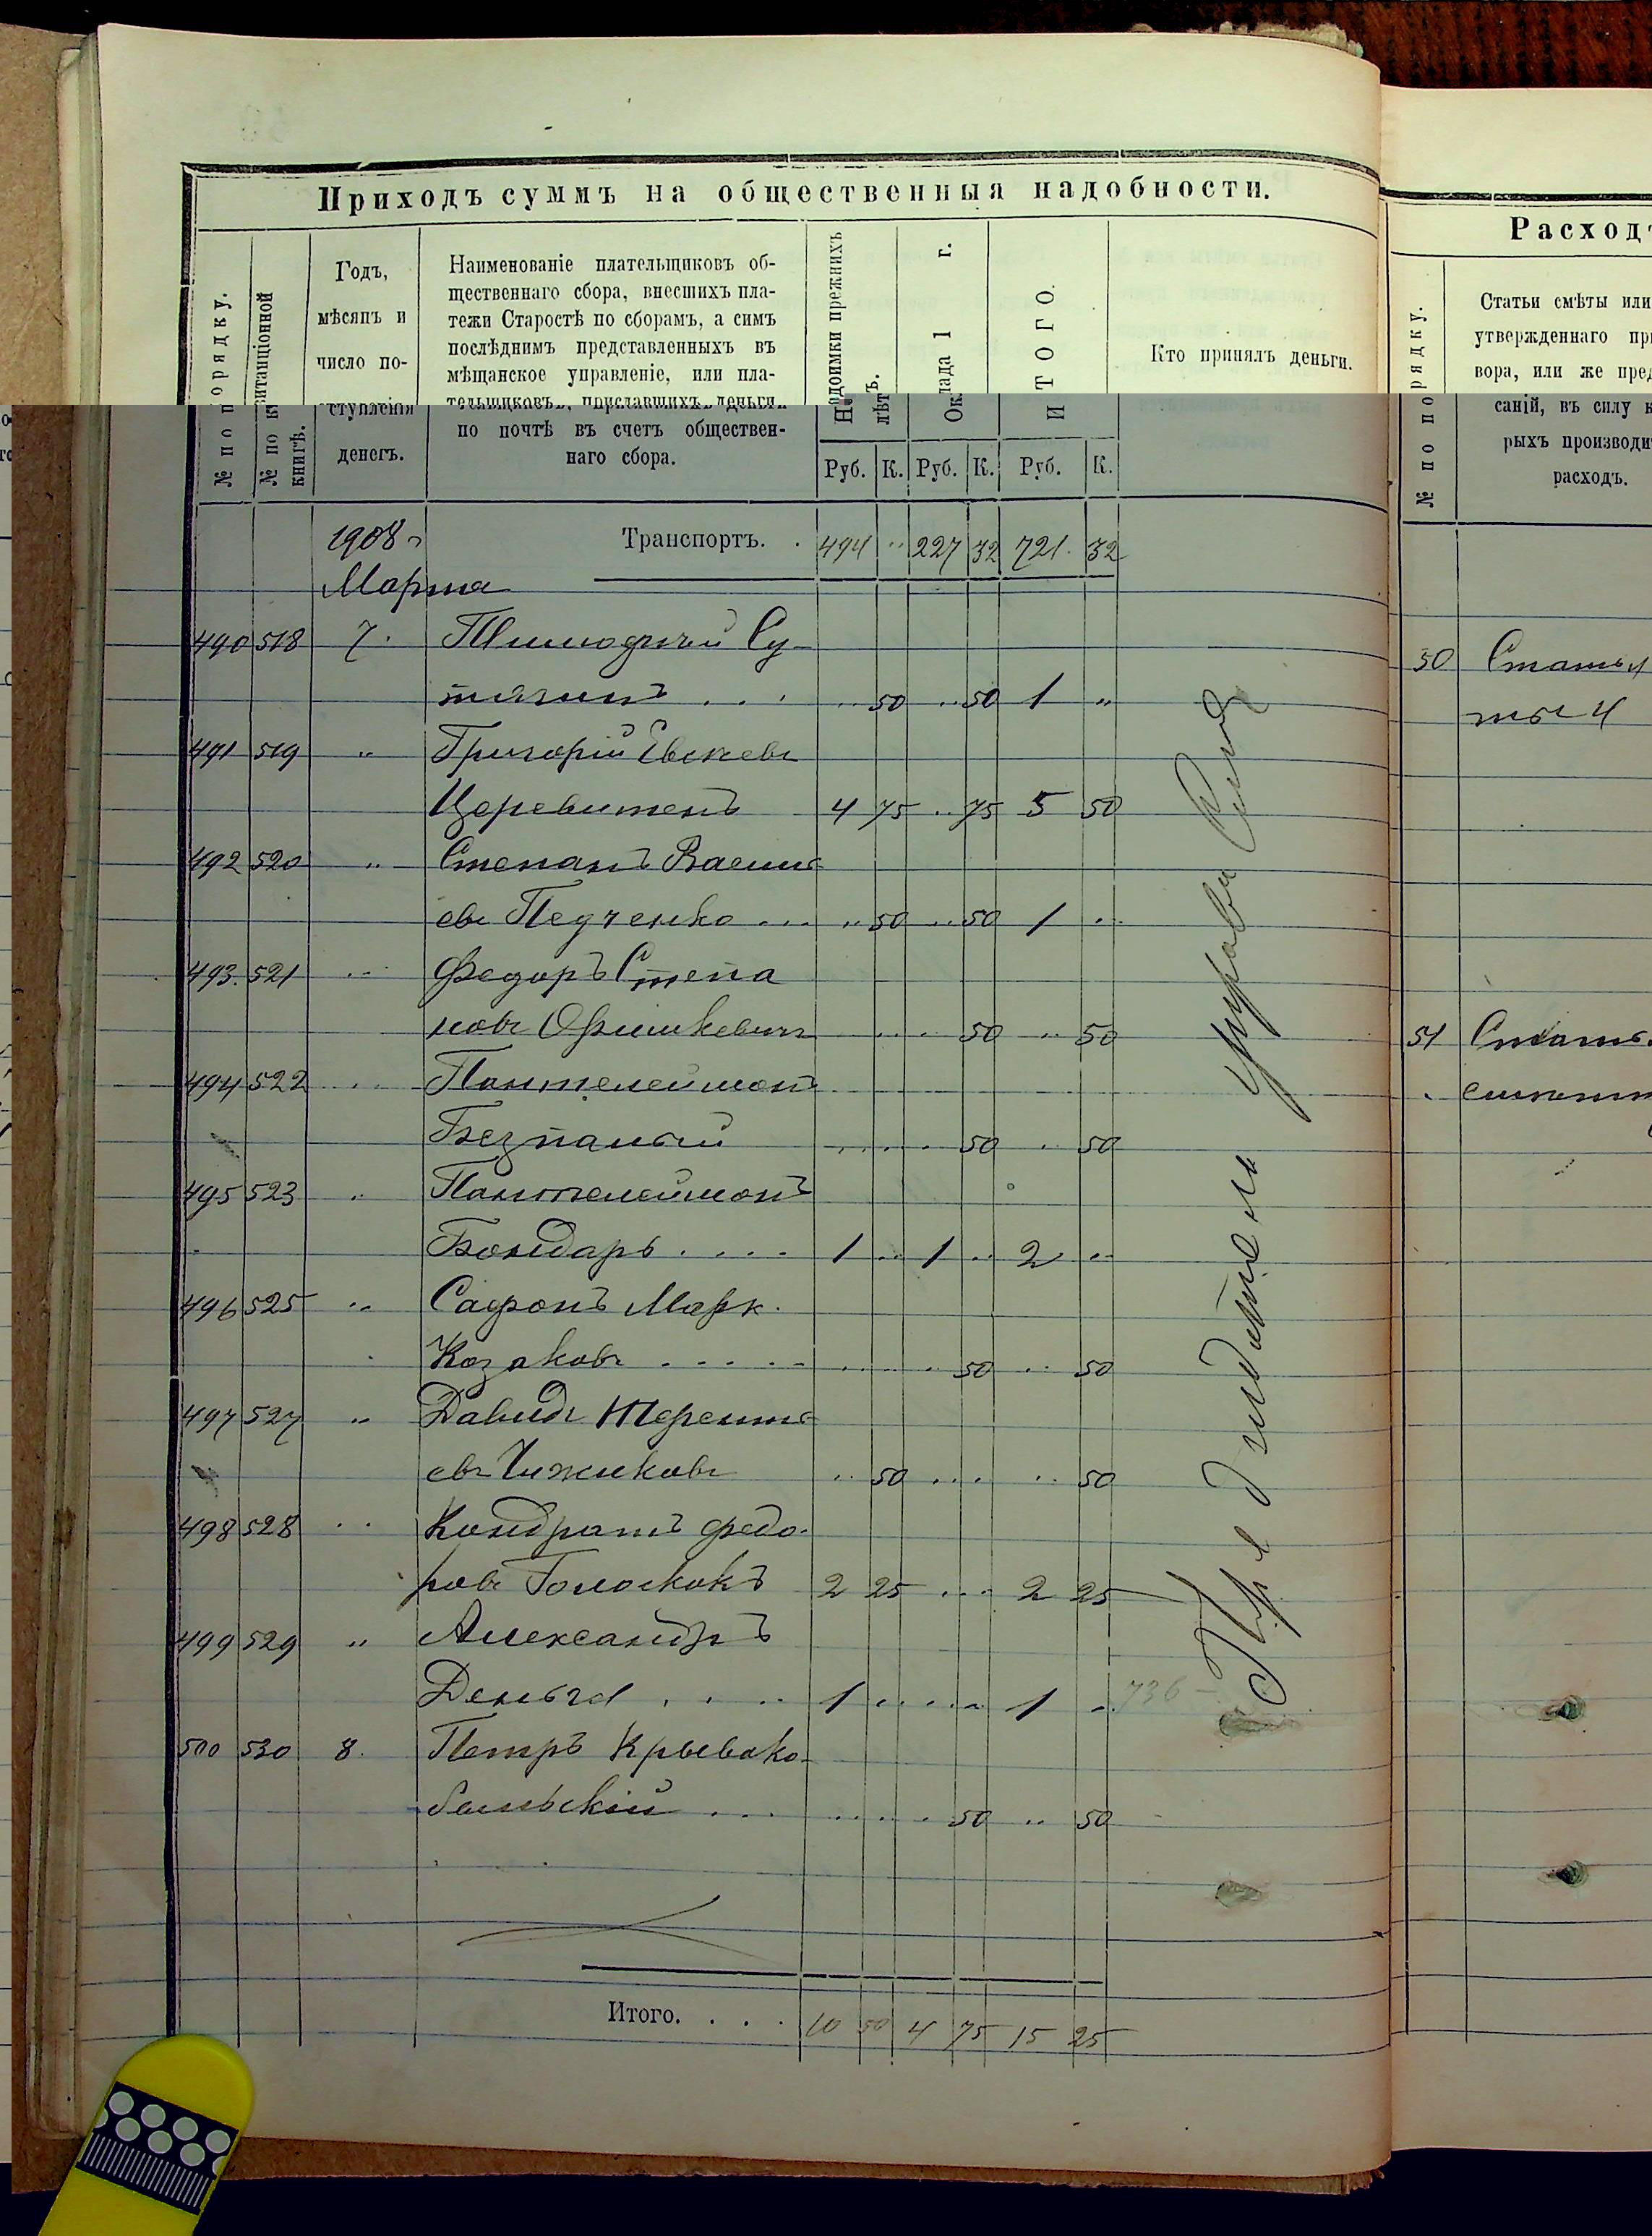 Приходъ суммъ на общественныя надобности.
№ по порядку.
№ по квитанціонной книгѣ.
Годъ,
мѣсяцъ и
число по-
ступленія
денегъ.
Наименованіе плательщиковъ об-
щественнаго сбора, внесшихъ пла-
тежи Старостѣ по сборамъ, а симъ
послѣднимъ представленныхъ въ
мѣщанское управленіе, или пла-
тельщиковъ, приславшихъ деньги
по почтѣ въ счетъ обществен-
наго сбора.
Недоимки прежнихъ лѣтъ.
Оклада 1 г.
ИТОГО.
Кто принялъ деньги.
Руб. К. Руб. К. Руб. К.
1908 г Транспортъ. . 494 " 227 32 721. 32
Марта
490 518 7. Тимофей Су-
.. 50 .. 50 1 "
491 519 " Григорій Евсеевъ
4 75 .. 75 5 50
492 520 " Степанъ Василь
евъ Педченко ... .. 50 .. 50 1 ..
493. 521 .. Федоръ Степа
новъ .... 50 .. 50
494 522 .. Пантелеймонъ
Безпалый .... 50 .. 50
495 523 .. Пантелеймонъ
Бондарь .... 1 .. 1 .. 2 ..
496 525 " Сафонъ Марк.
Козаковъ ..... .... 50 .. 50
497 527 " Давидъ Терентьь
евъ Чижиковъ .. 50 ... .. 50
498 528 .. Кондратъ Федо-
ровъ Голоскокъ 2 25 ... 2 25
499 529 " Александръ
Деньга .... 1 .... 1 ..
736 -
500 530 8. Петръ Крывоко-
быльскій ... .... 50 .. 50
Итого. . . . 10 50 4 75 15 25
Расходъ
№ по порядку.
Статьи смѣты или
утвержденнаго при
вора, или же пред
саній, въ силу к
рыхъ производи
расходъ.
50 Статья
ты 4
51 Стать